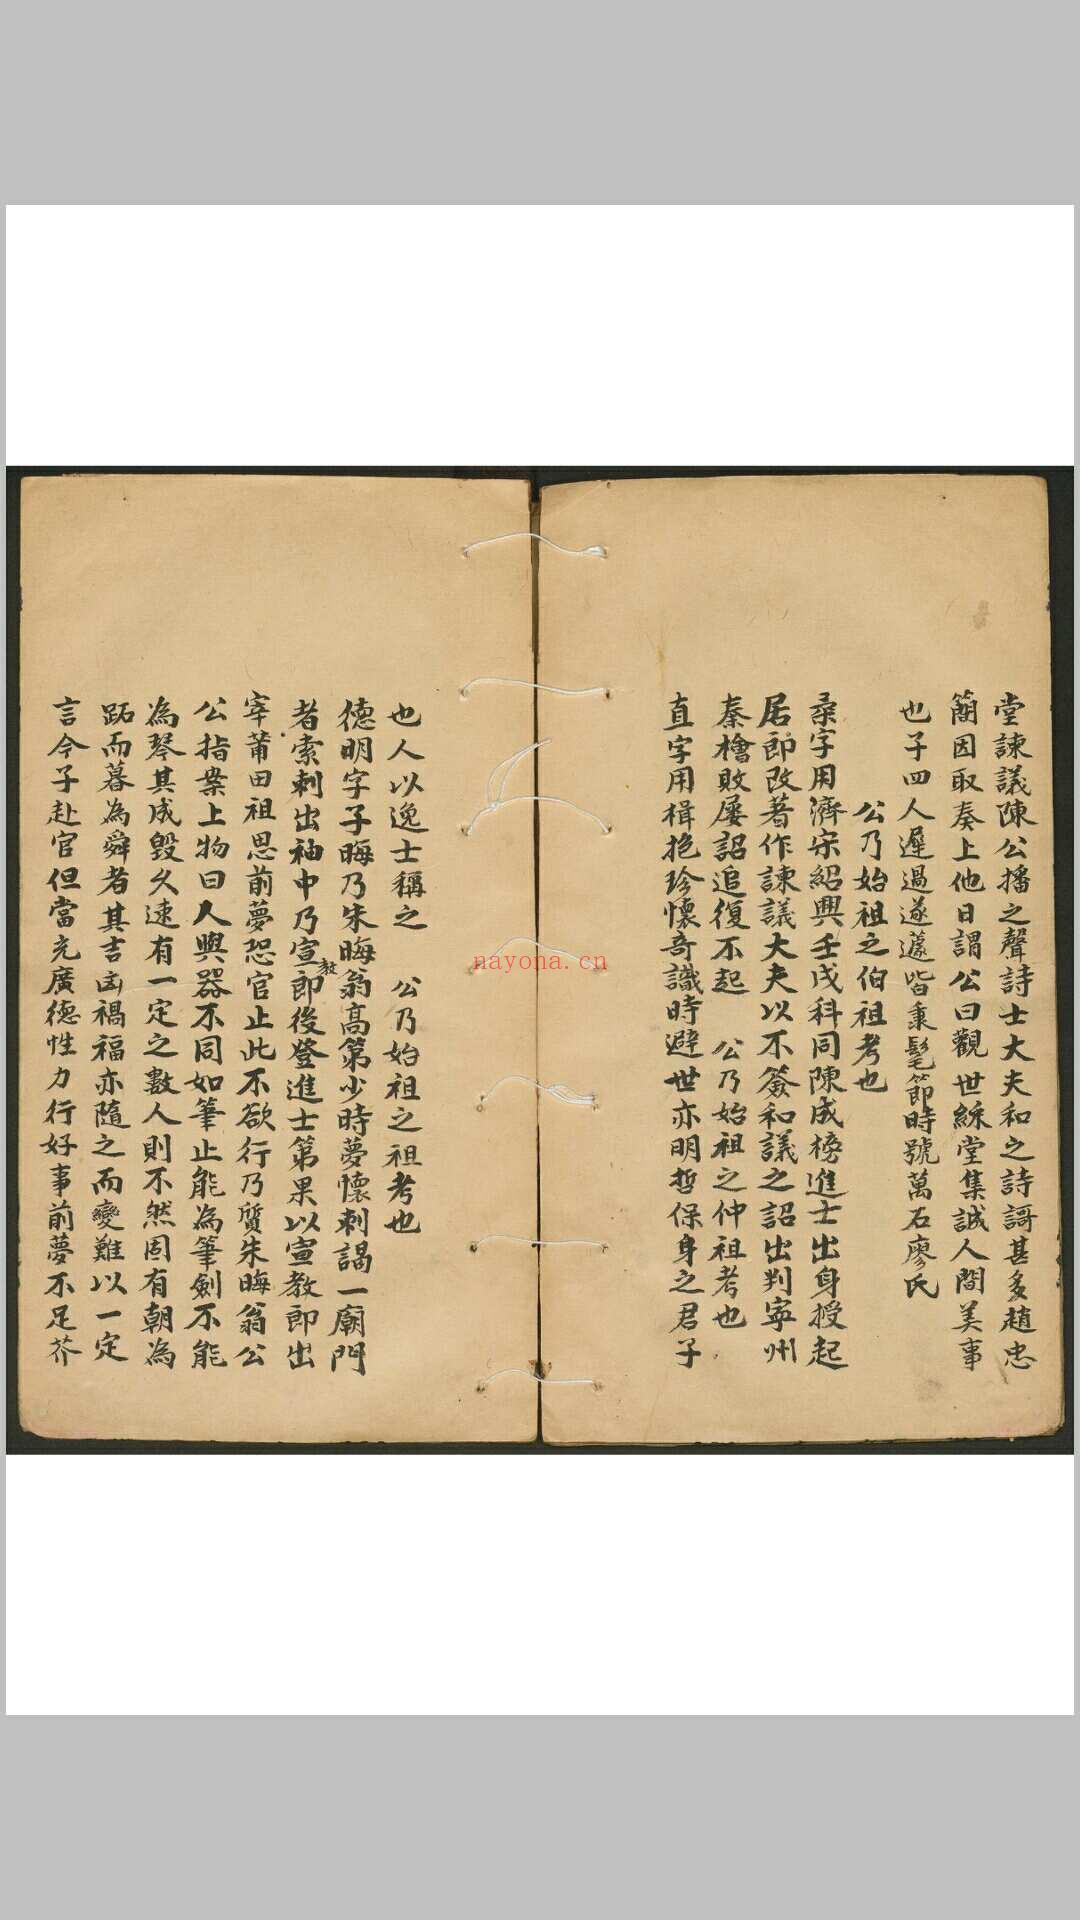 堂諫議陳公播之聲詩士大夫和之詩謌甚多趙忠
簡因取奏上他日謂公曰觀世綵堂集誠人間美事
也子四人遲過遂蘧皆秉髦節時號萬石廖氏
公乃始祖之伯祖考也
字用濟宋紹興壬戌科同陳成榜進士出身授起
居郎改著作諫議大夫以不簽和議之詔出判寧州
秦檜敗屢詔追復不起 公乃始祖之仲祖考也
直字用楫抱珍懷奇識時避世亦明哲保身之君子
也人以逸士稱之 公乃始祖之祖考也
德明字子晦乃朱晦翁高第少時夢懷刺謁一廟門
者索刺出袖中乃宣教郎後登進士第果以宣教郎出
宰莆田祖思前夢恐官止此不欲行乃質朱晦翁公
公指案上物曰人與器不同如筆止能為筆劍不能
為琴其成毀久速有一定之數人則不然固有朝為
跖而暮為舜者其吉凶禍福亦隨之而變難以一定
言今子赴官但當充廣德性力行好事前夢不足芥
nayona.cn